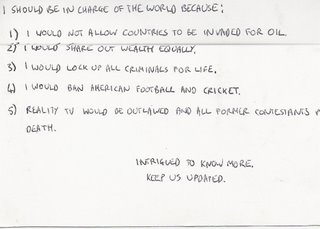 I SHOULD BE IN CHARGE OF THE WORLD BECAUSE:
1) I WOULD NOT ALLOW COUNTRIES TO BE INVADED FOR OIL.
2) I WOULD SHARE OUT WEALTH EQUALLY.
3) I WOULD LOCK UP ALL CRIMINALS FOR LIFE.
4) I WOULD BAN AMERICAN FOOTBALL AND CRICKET.
5) REALITY TV WOULD BE OUTLAWED AND ALL FORMER CONTESTANTS
DEATH.
INTRIGUED TO KNOW MORE.
KEEP US UPDATED.